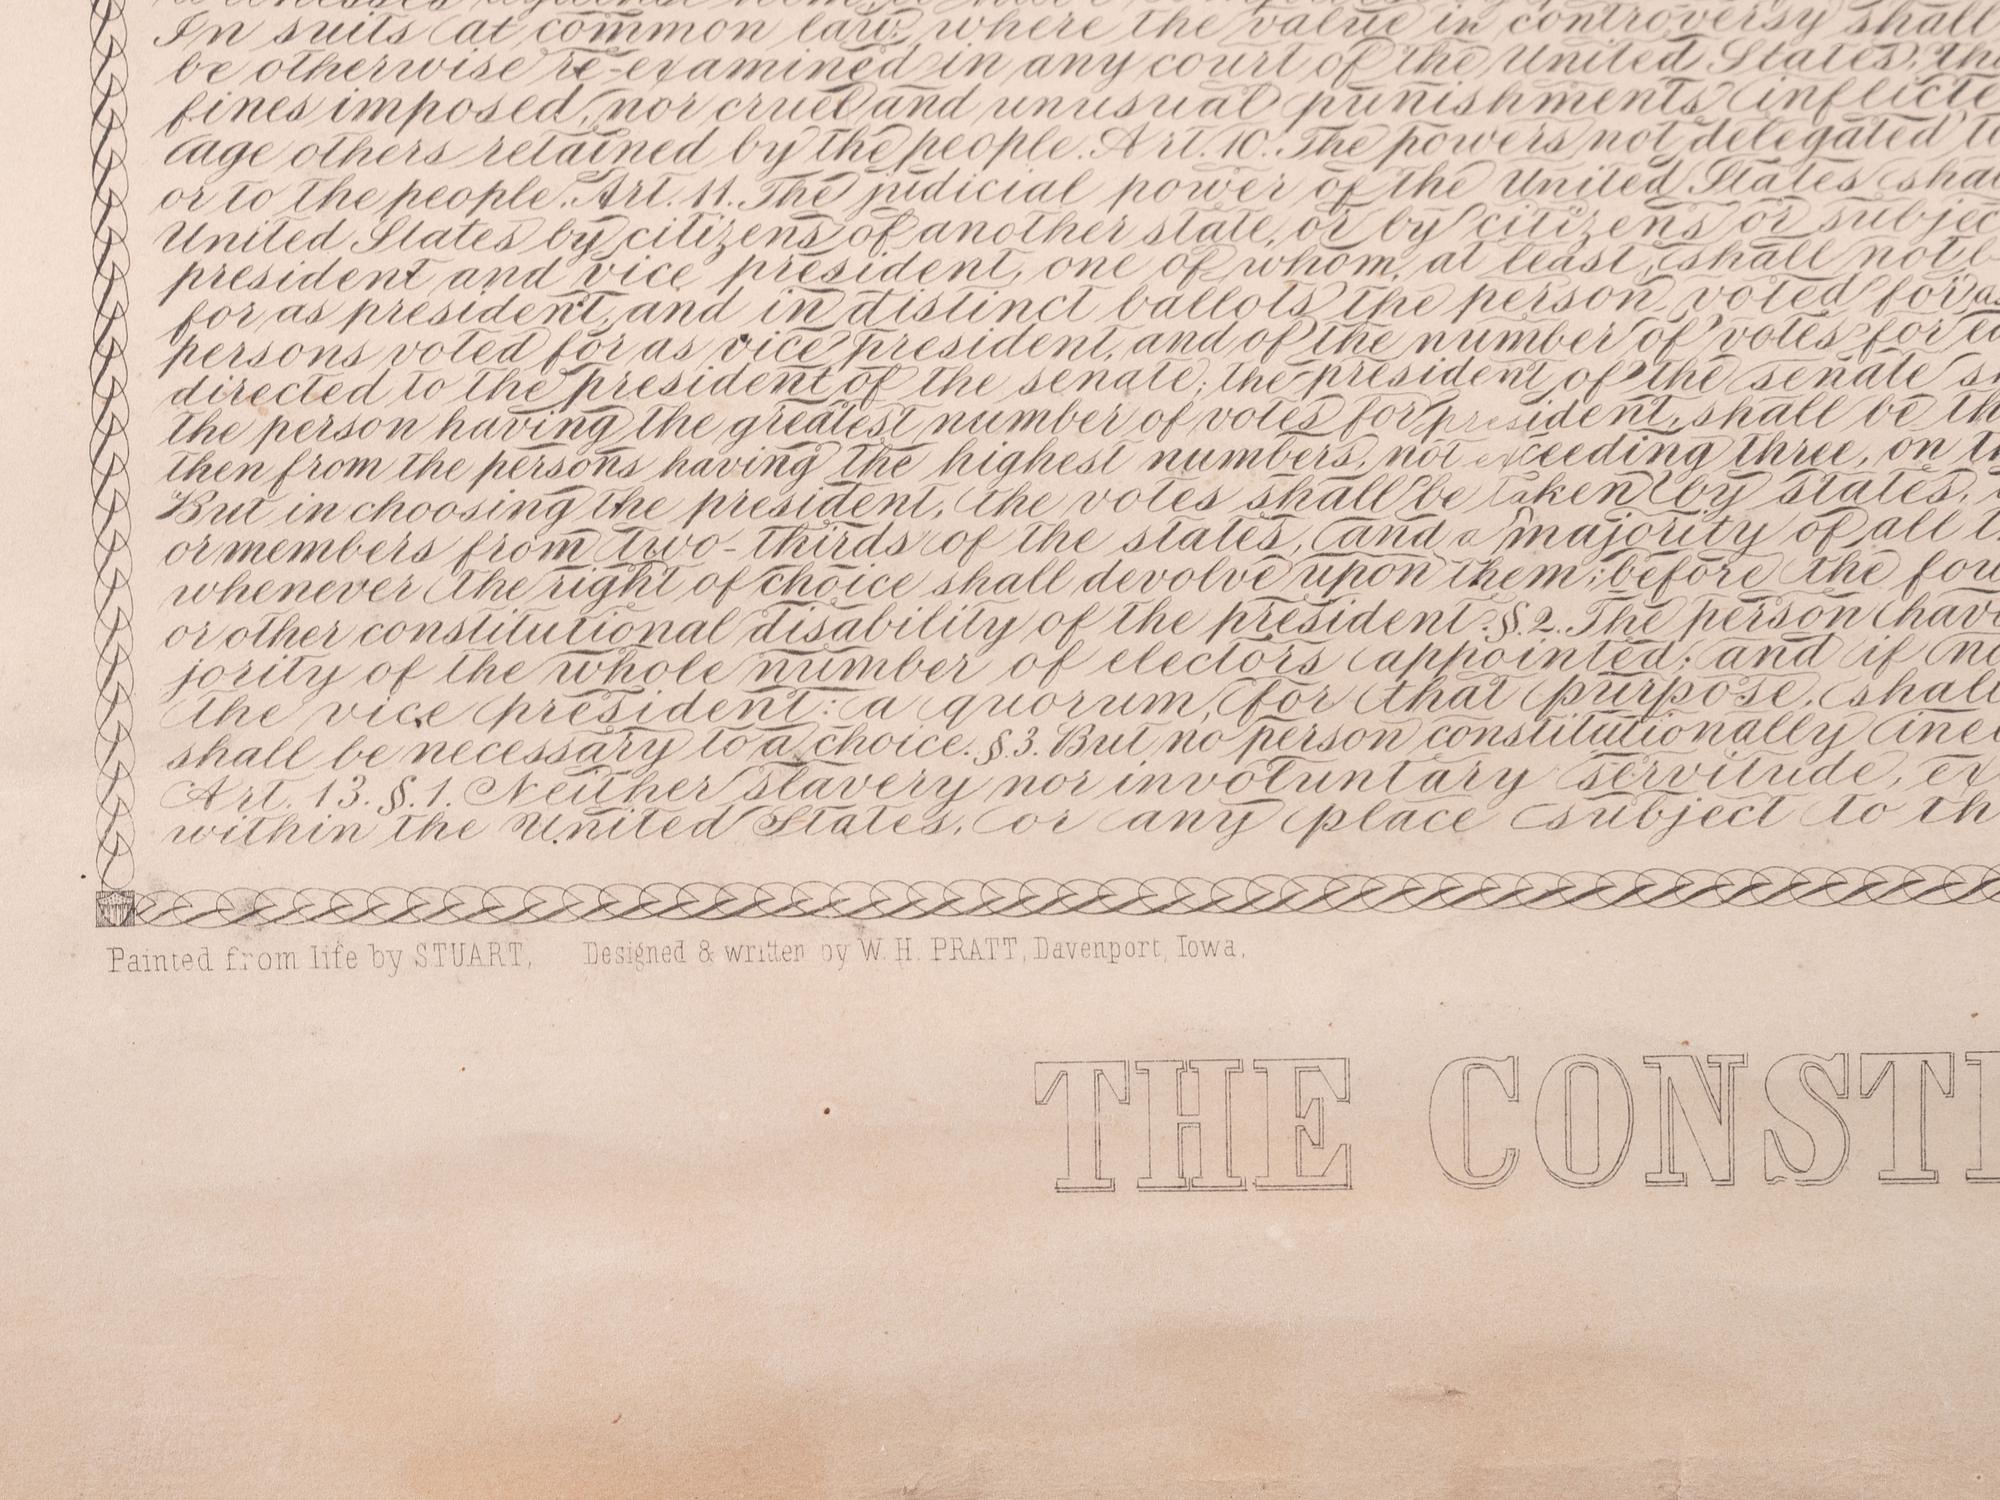 In suits at common law, where the value in controversy shall
be otherwise re-examined in any court of the United States, tha
fines imposed, nor cruel and unusual punishments inflicte
age others retained by the people. Art. 10. The powers not delegated t
or to the people. Art. 11. The judicial power of the United States shal
United States by citizens of another state, or by citizens or subjec
president and vice president, one of whom, at least, shall not b
for as president, and in distinct ballots the person voted for as
persons voted for as vice president, and of the number of votes for ea
directed to the president of the senate; the president of the senate s
the person having the greatest number of votes for president, shall be th
then from the persons having the highest numbers, not exceeding three, on t
But in choosing the president, the votes shall be taken by states,
or members from two-thirds of the states, and a majority of all t
whenever the right of choice shall devolve upon them, before the fou
or other constitutional disability of the president. §.2. The person hav
jority of the whole number of electors appointed; and if no
the vice president: a quorum, for that purpose, shall
shall be necessary to a choice. §.3. But no person constitutionally ine
Art. 13. §.1. Neither slavery nor involuntary servitude, ex
within the United States, or any place subject to th
Painted from life by STUART, Designed & written by W. H. PRATT, Davenport, Iowa,
THE CONSTI